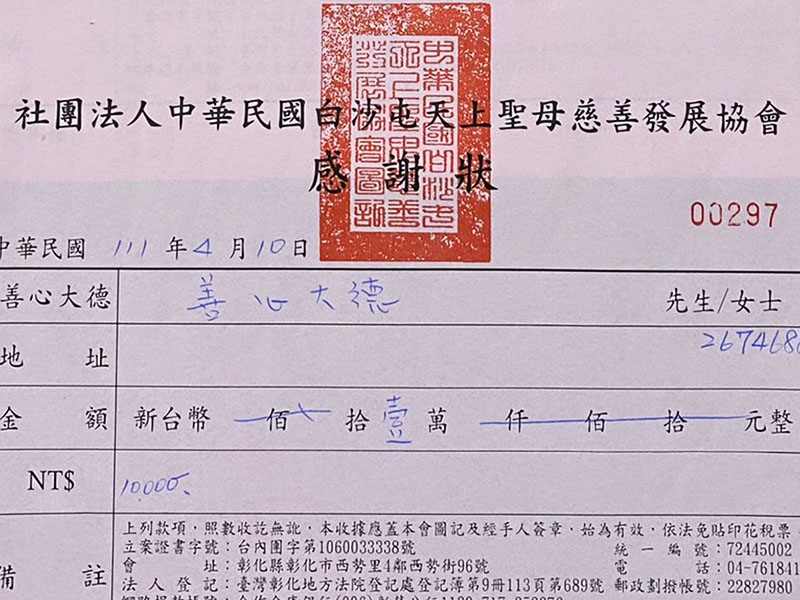 社團法人中華民國白沙屯天上聖母慈善發展協會
感謝狀
00297
中華民國 111 年 4 月 10 日
善心大德 善心大德 先生/女士
地址 267468
金額 新台幣 佰 拾 壹 萬 仟 佰 拾 元整
NT$ 10,000.
上列款項，照數收訖無訛，本收據應蓋本會圖記及經手人簽章，始為有效，依法免貼印花稅票
立案證書字號：台內團字第1060033338號 統一編號：72445002
會址：彰化縣彰化市西勢里4鄰西勢街96號 電話：04-761841
法人登記：臺灣彰化地方法院登記處登記簿第9冊113頁第689號 郵政劃撥帳號：22827980
備註